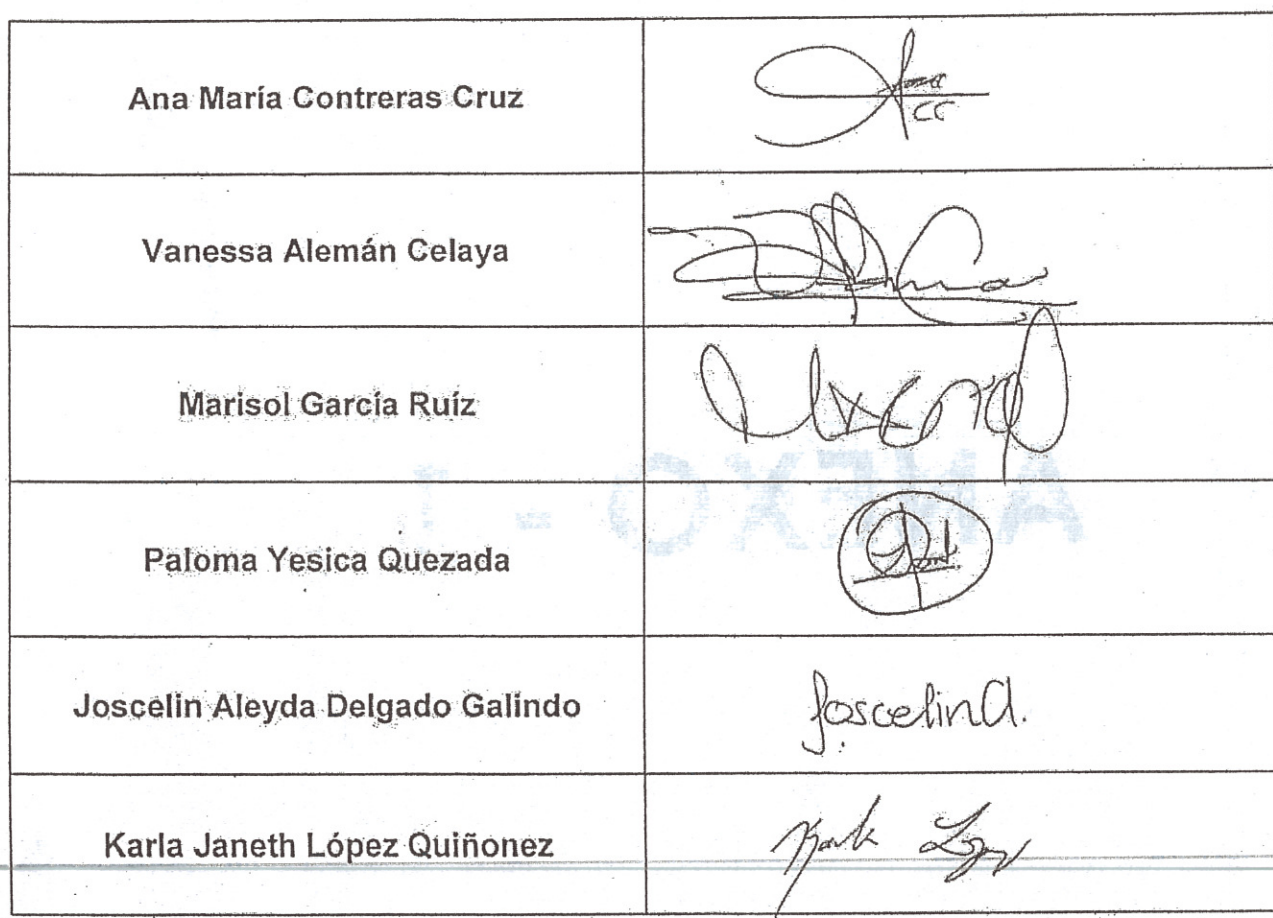 Ana María Contreras Cruz
CC
Vanessa Alemán Celaya
Marisol García Ruíz
Paloma Yesica Quezada
Joscelin Aleyda Delgado Galindo
Joscelin A.
Karla Janeth López Quiñonez
ANEXO - 1